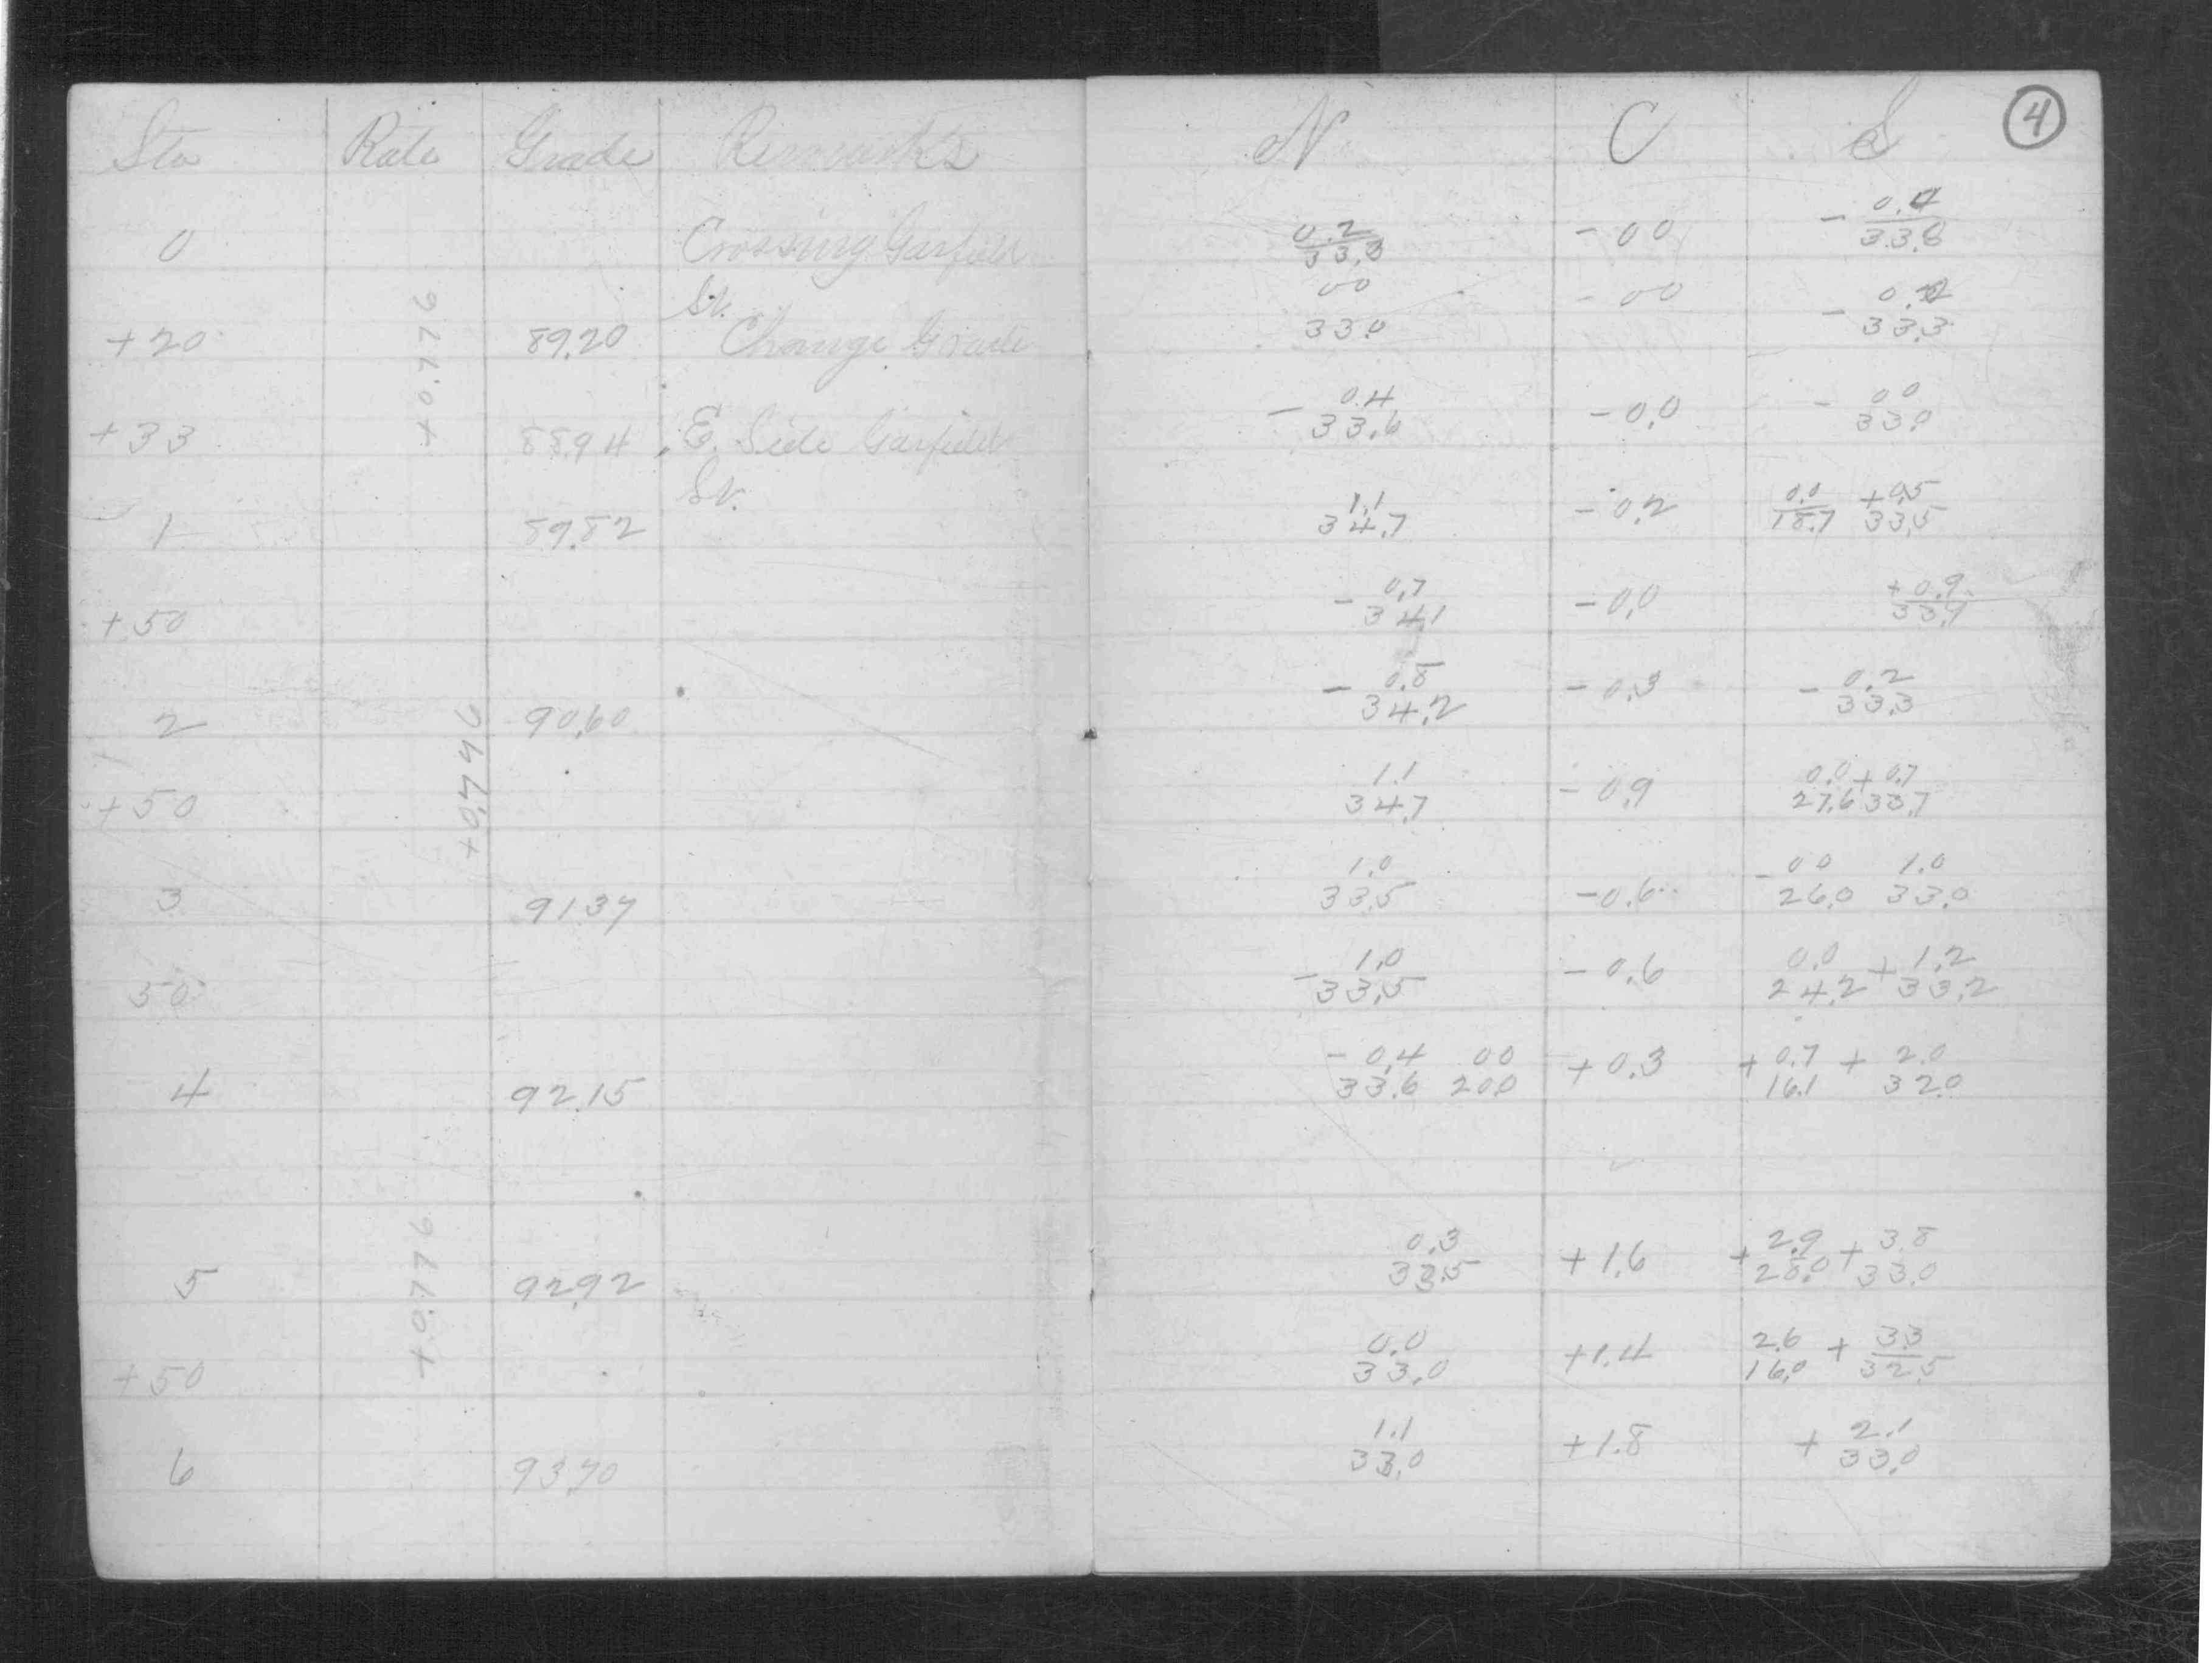 Sta Rate Grade Remarks N C S 4
0 Crossing Garfield 0.2/33.3 -00 - 0.4/33.6
St.
+20 89.20 Change Grade 00/33.0 -00 - 0.2/33.3
+0.776
+33 88.94 E. Side Garfield - 0.4/33.6 -0.0 - 00/33.0
St.
1 89.82 1.1/34.7 -0.2 0.0/18.7 +0.5/33.5
+50 - 0.7/34.1 -0.0 +0.9/33.9
2 90.60 - 0.8/34.2 -0.3 - 0.2/33.3
+0.776
+50 1.1/34.7 -0.9 0.0/27.6 + 0.7/33.7
3 91.37 1.0/33.5 -0.6 - 00/26.0 1.0/33.0
50 - 1.0/33.5 -0.6 0.0/24.2 + 1.2/33.2
4 92.15 - 0.4/33.6 00/20.0 +0.3 + 0.7/16.1 + 2.0/32.0
5 92.92 0.3/33.5 +1.6 + 2.9/28.0 + 3.8/33.0
+0.776
+50 0.0/33.0 +1.4 2.6/16.0 + 3.3/32.5
6 93.70 1.1/33.0 +1.8 + 2.1/33.0